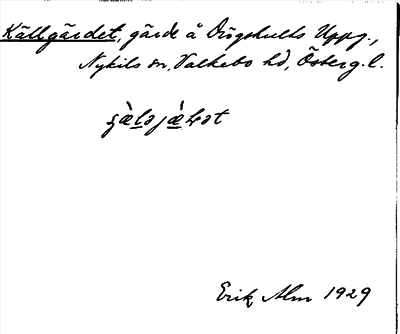 Källgärdet, gärde å Drögshults Uppg.,
Nykils sn, Valkebo hd, Österg. l.
Erik Alm 1929